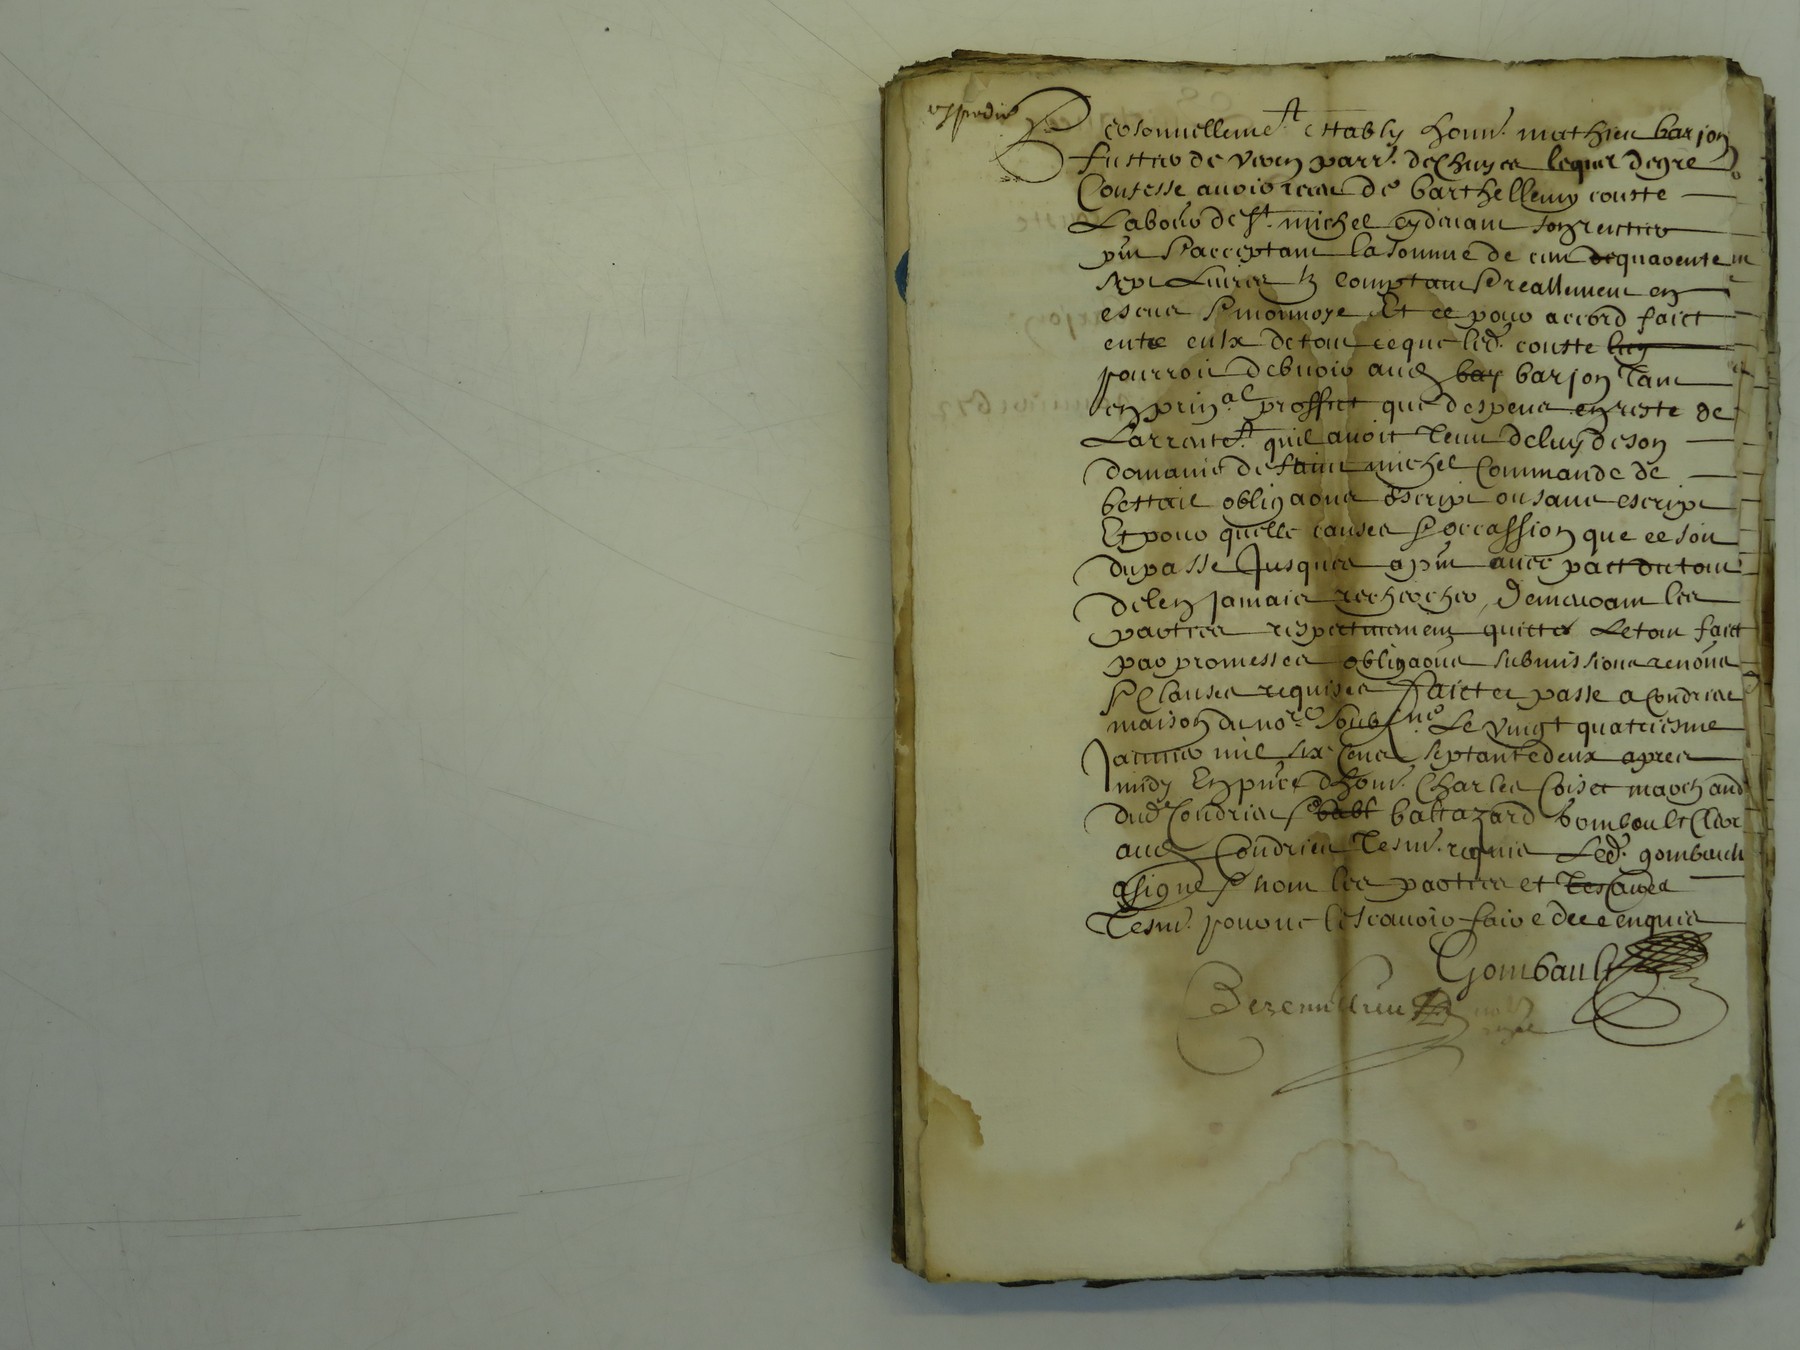 expedié
Personnellemet estably honn. mathieu barjon
fustier de veren parr. de Chuyes lequel de gre
Confesse avoir receu de barthellemy couste
Labour de st. michel cy devant son rentier
pnt & acceptant la somme de cen quarente
sept Livres tz comptant & reallement en
escus & monnoye Et ce pour accord faict
entre eulx de tout ce que led. couste
pourroit debvoir aud barjon tant
en prinal proffict que despens en reste de
Larrentet. quil avoit tenu de luy de son
domaine de saint michel Commande de
bettail obligaons escript ou sans escript
Et pour quelle causes & occassion que ce soit
du passe Jusques a pnt avec pact
de len jamais rechercher, demeurant les
parties respectivement quittes Le tout faict
par promesses obligaons submissions renons
& Clauses requises faict et passe a Condrieu
maison du nore soubsne. Le vingt quatriesme
Janvier mil six cens septante deux apres
midy En pnce dhonn. Charles Coiset marchand
dud Condrieu & baltazard bombault Clerc
aud Condrieu Tesm. requis Led. gombault
a signe & non les parties et
Tesm. pour ne le scavoir faire de ce enquis
Gombault